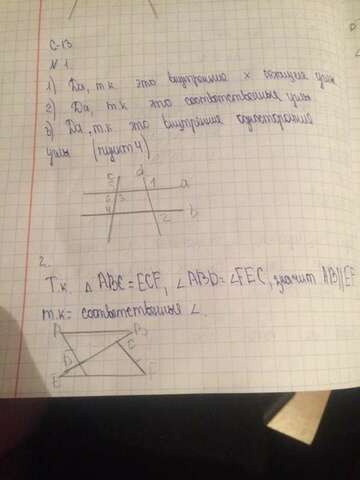 С-13
№ 1.
1) Да, т.к это внутренние х лежащие углы
2) Да, т.к это соответственные углы
3) Да, т.к это внутренние односторонние
углы (пункт 4)
5 d 1 a
6 3
4 b
2
2.
Т.к. △ ABC = ECF, ∠ ABD = ∠FEC, значит AB||EF
т.к = соответственные ∠.
A B
D C
E F